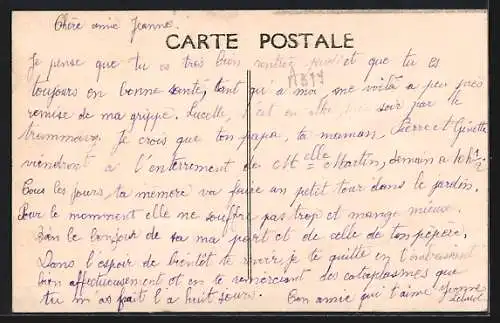 Chère amie Jeanne.
CARTE POSTALE
Je pense que tu es très bien rentrée et que tu es
A819
toujours en bonne santé, tant qu'à moi, me voilà à peu près
remise de ma grippe. Lucette, s'est en allée soir par le
tramway. Je crois que ton papa, ta maman, Pierre et Ginette
viendront à l'enterrement de Melle Martin, demain a 10h 1/2
Tous les jours, ta mémère va faire un petit tour dans le jardin.
Pour le momment elle ne souffre pas trop et mange mieux.
Bien le bonjour de sa ma part et de celle de ton pépère,
Dans l'espoir de bientôt te revoir je te quitte en t'embrassant
bien affectueusement et en te remerciant des cataplasmes que
tu m'as fait l'a huit jours. Ton amie qui t'aime Yvonne